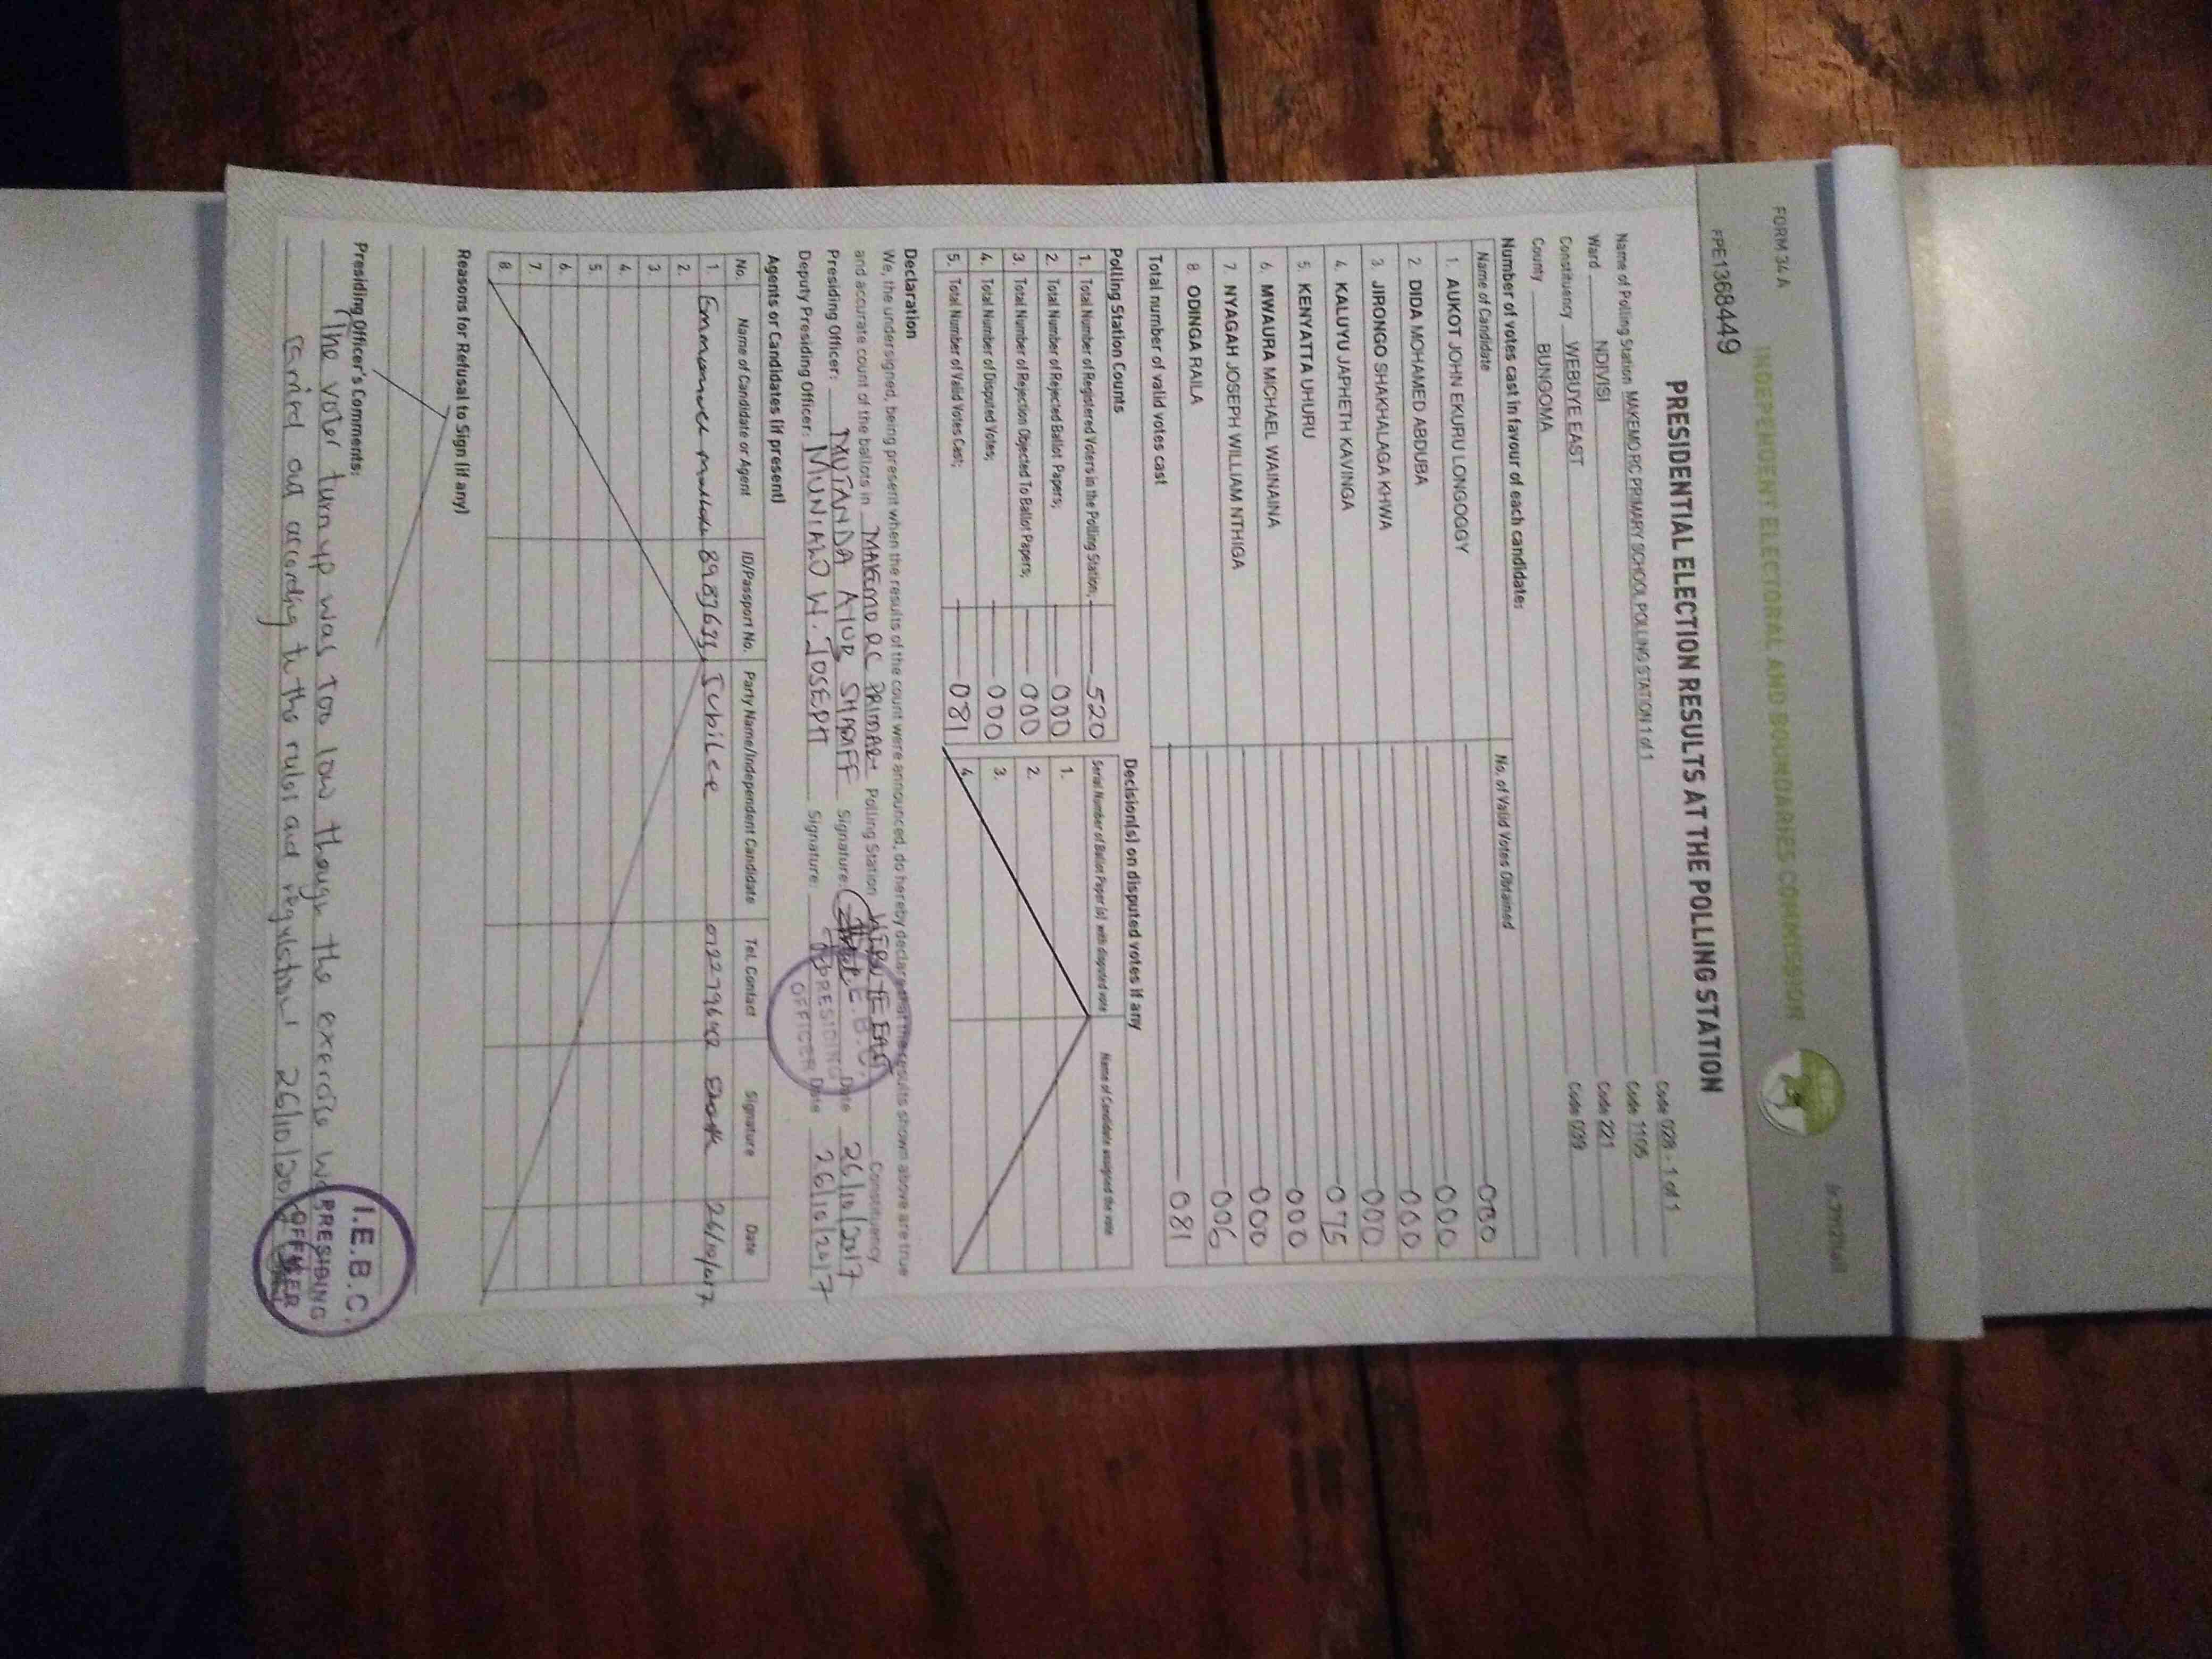 FORM 34A
INDEPENDENT ELECTORAL AND BOUNDARIES COMMISSION
FPE1368449
PRESIDENTIAL ELECTION RESULTS AT THE POLLING STATION
Name of Polling Station MAKEMO RC PRIMARY SCHOOL POLLING STATION 1 of 1 Code 028 - 1 of 1
Ward NDIVISI Code 1105
Constituency WEBUYE EAST Code 221
County BUNGOMA Code 039
Number of votes cast in favour of each candidate:
Name of Candidate No. of Valid Votes Obtained
1. AUKOT JOHN EKURU LONGOGGY 000
2. DIDA MOHAMED ABDUBA 000
3. JIRONGO SHAKHALAGA KHWA 000
4. KALUYU JAPHETH KAVINGA 000
5. KENYATTA UHURU 075
6. MWAURA MICHAEL WAINAINA 000
7. NYAGAH JOSEPH WILLIAM NTHIGA 000
8. ODINGA RAILA 006
Total number of valid votes cast 081
Polling Station Counts
1. Total Number of Registered Voters in the Polling Station; 520
2. Total Number of Rejected Ballot Papers; 000
3. Total Number of Rejection Objected To Ballot Papers; 000
4. Total Number of Disputed Votes; 000
5. Total Number of Valid Votes Cast; 081
Decision(s) on disputed votes if any
Serial Number of Ballot Paper (s) with disputed vote Name of Candidate assigned the vote
1.
2.
3.
4.
Declaration
We, the undersigned, being present when the results of the count were announced, do hereby declare that the results shown above are true
and accurate count of the ballots in MAKEMO RC PRIMARY Polling Station WEBUYE EAST Constituency
Presiding Officer: MUTANDA SHARIFF Signature: Date 26/10/2017
Deputy Presiding Officer: MUNIALO W. JOSEPH Signature: Date 26/10/2017
I.E.B.C.
PRESIDING
OFFICER
Agents or Candidates (if present)
No. Name of Candidate or Agent ID/Passport No. Party Name/Independent Candidate Tel. Contact Signature Date
1. Jubilee 26/10/017
2.
3.
4.
5.
6.
7.
8.
Reasons for Refusal to Sign (if any)
Presiding Officer's Comments:
The voter turn up was too low though the exercise was
carried out according to the rules and regulations 26/10/20
I.E.B.C.
PRESIDING
OFFICER